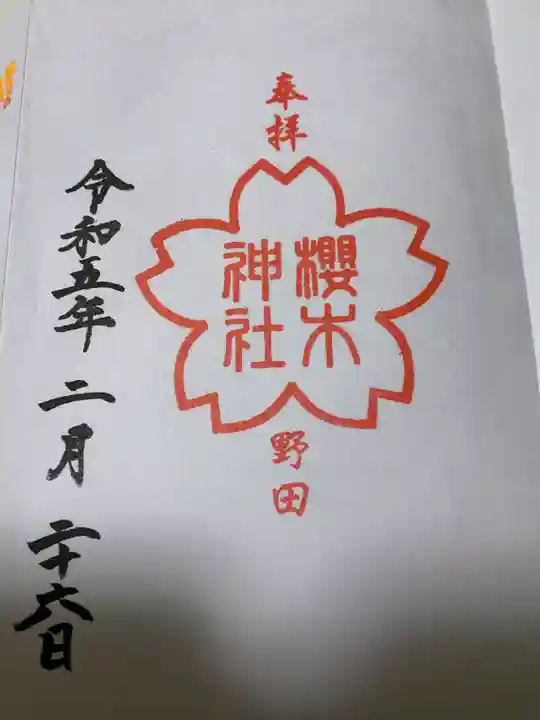 奉拝
櫻木
神社
野田
令和五年 二月 二十六日